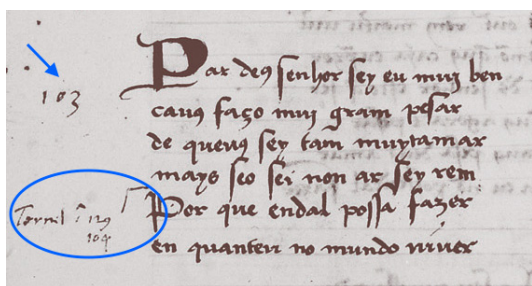 103
Par deꝰ senhor sey eu muy ben
cauꝰ faço muy gram pesar
de queuꝰ sey tam muytamar
mays seo sei non ar sey rem
Tornel
Por que endal possa fazer
104
en quanteu no mundo uiuer